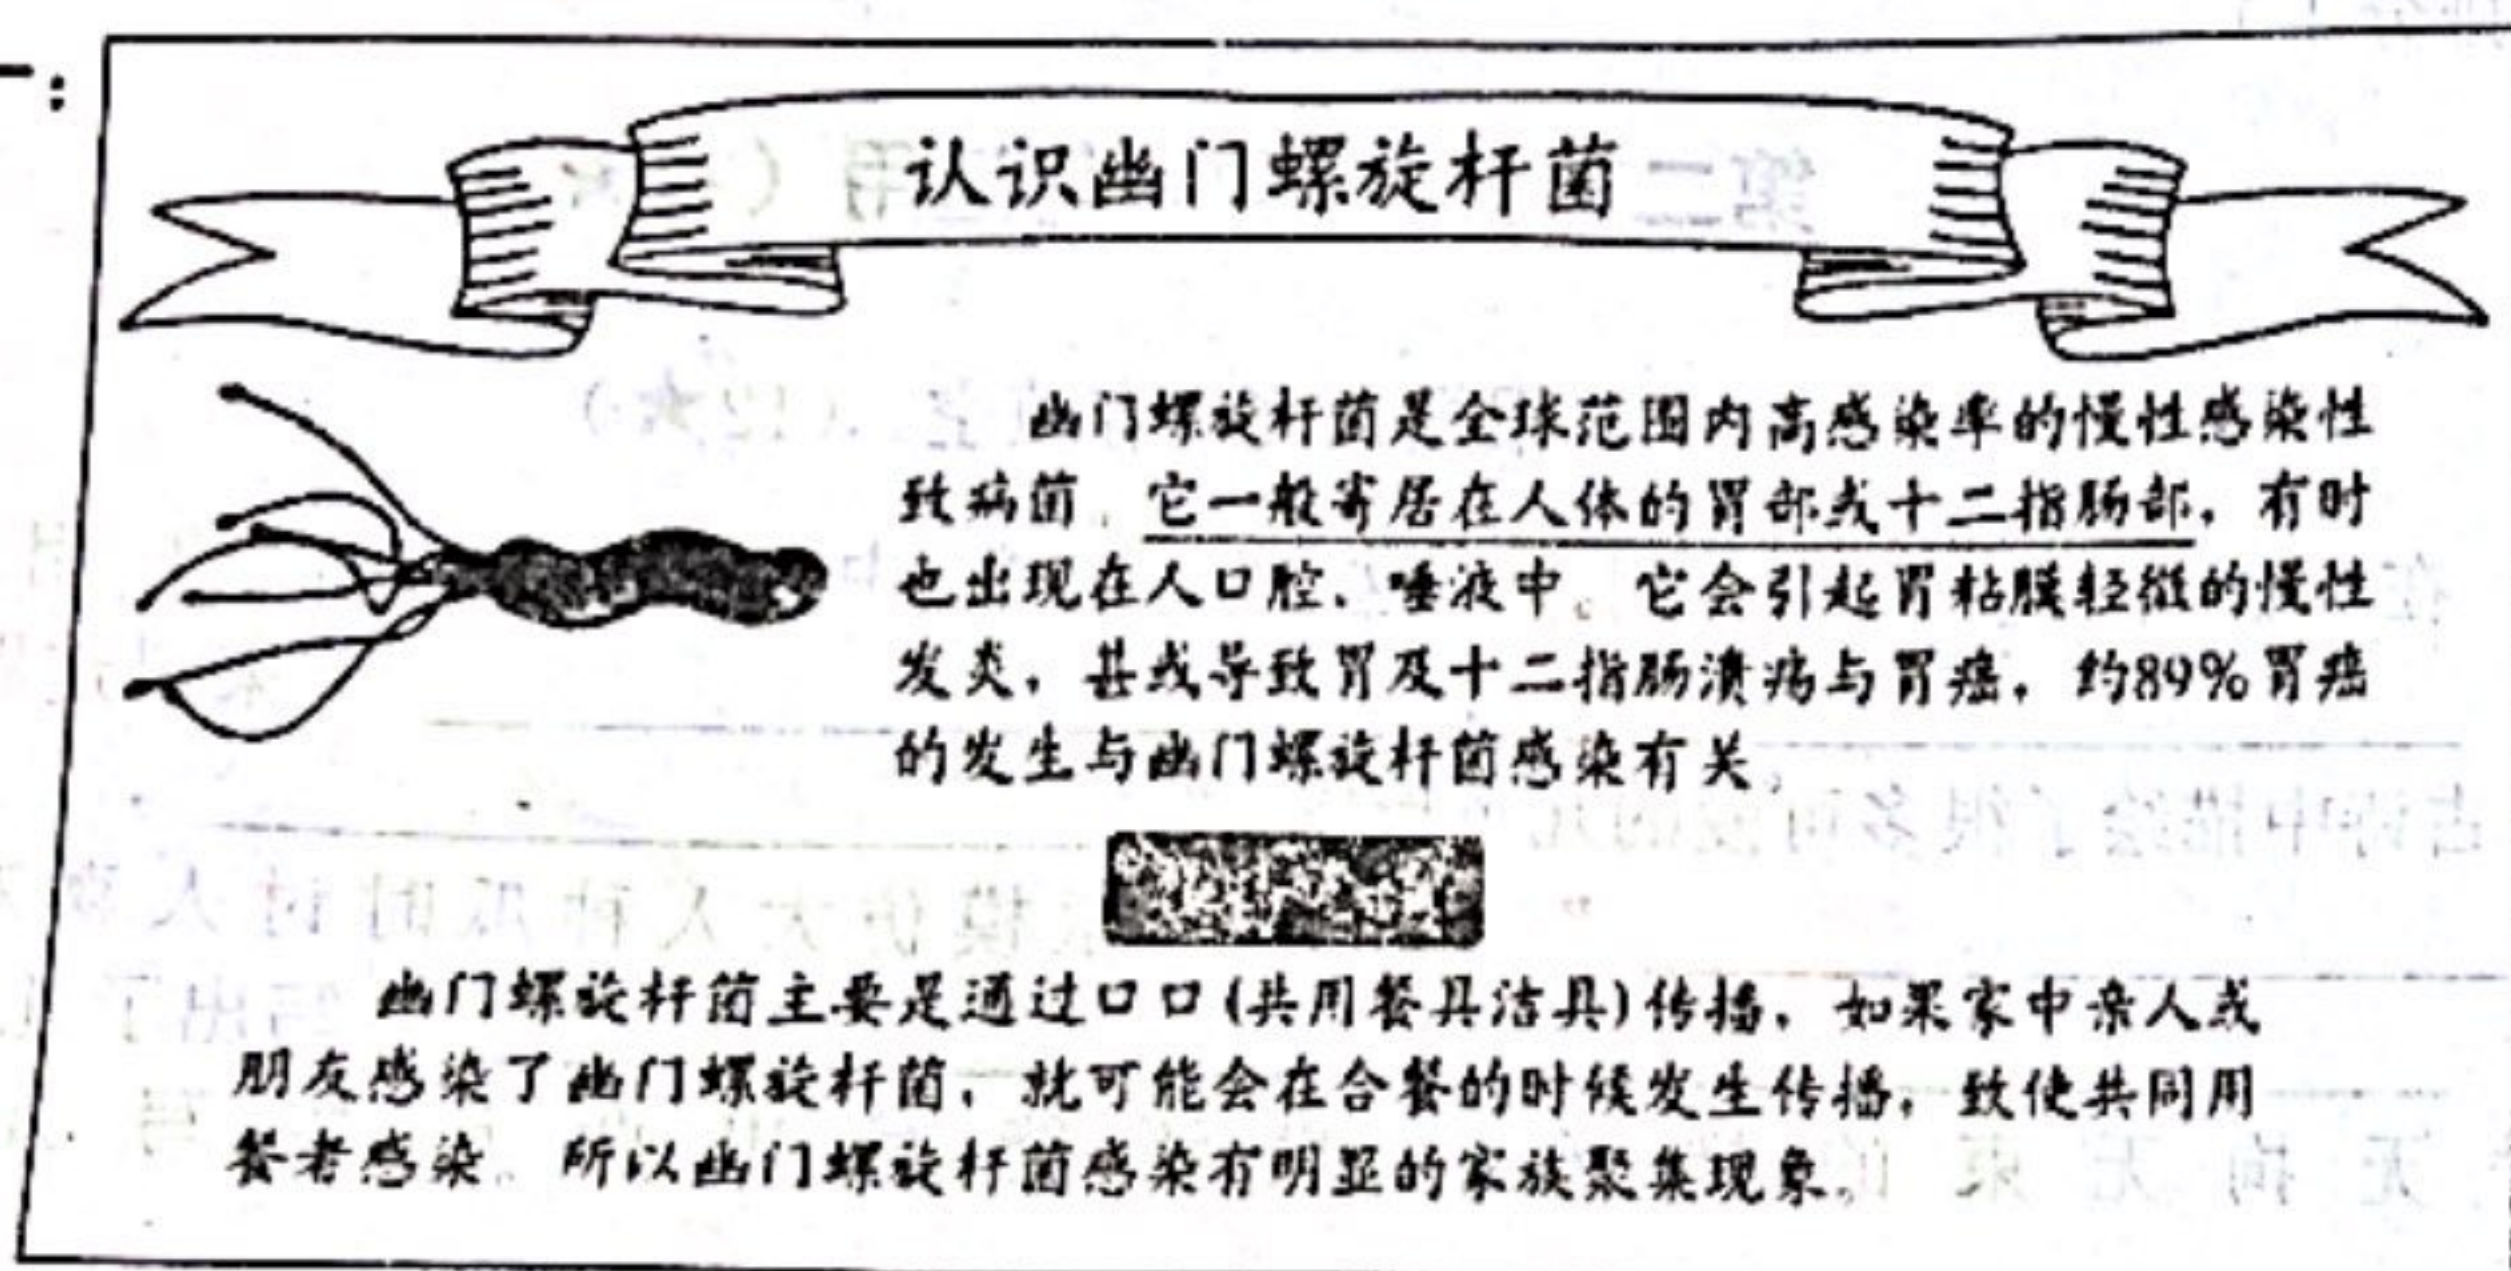 认识幽门螺旋杆菌
幽门螺旋杆菌是全球范围内高感染率的慢性感染性
致病菌。它一般寄居在人体的胃部或十二指肠部，有时
也出现在人口腔、唾液中。它会引起胃粘膜轻微的慢性
发炎，甚或导致胃及十二指肠溃疡与胃癌，约89%胃癌
的发生与幽门螺旋杆菌感染有关。
幽门螺旋杆菌主要是通过口口(共用餐具洁具)传播，如果家中亲人或
朋友感染了幽门螺旋杆菌，就可能会在合餐的时候发生传播，致使共同用
餐者感染。所以幽门螺旋杆菌感染有明显的家族聚集现象。